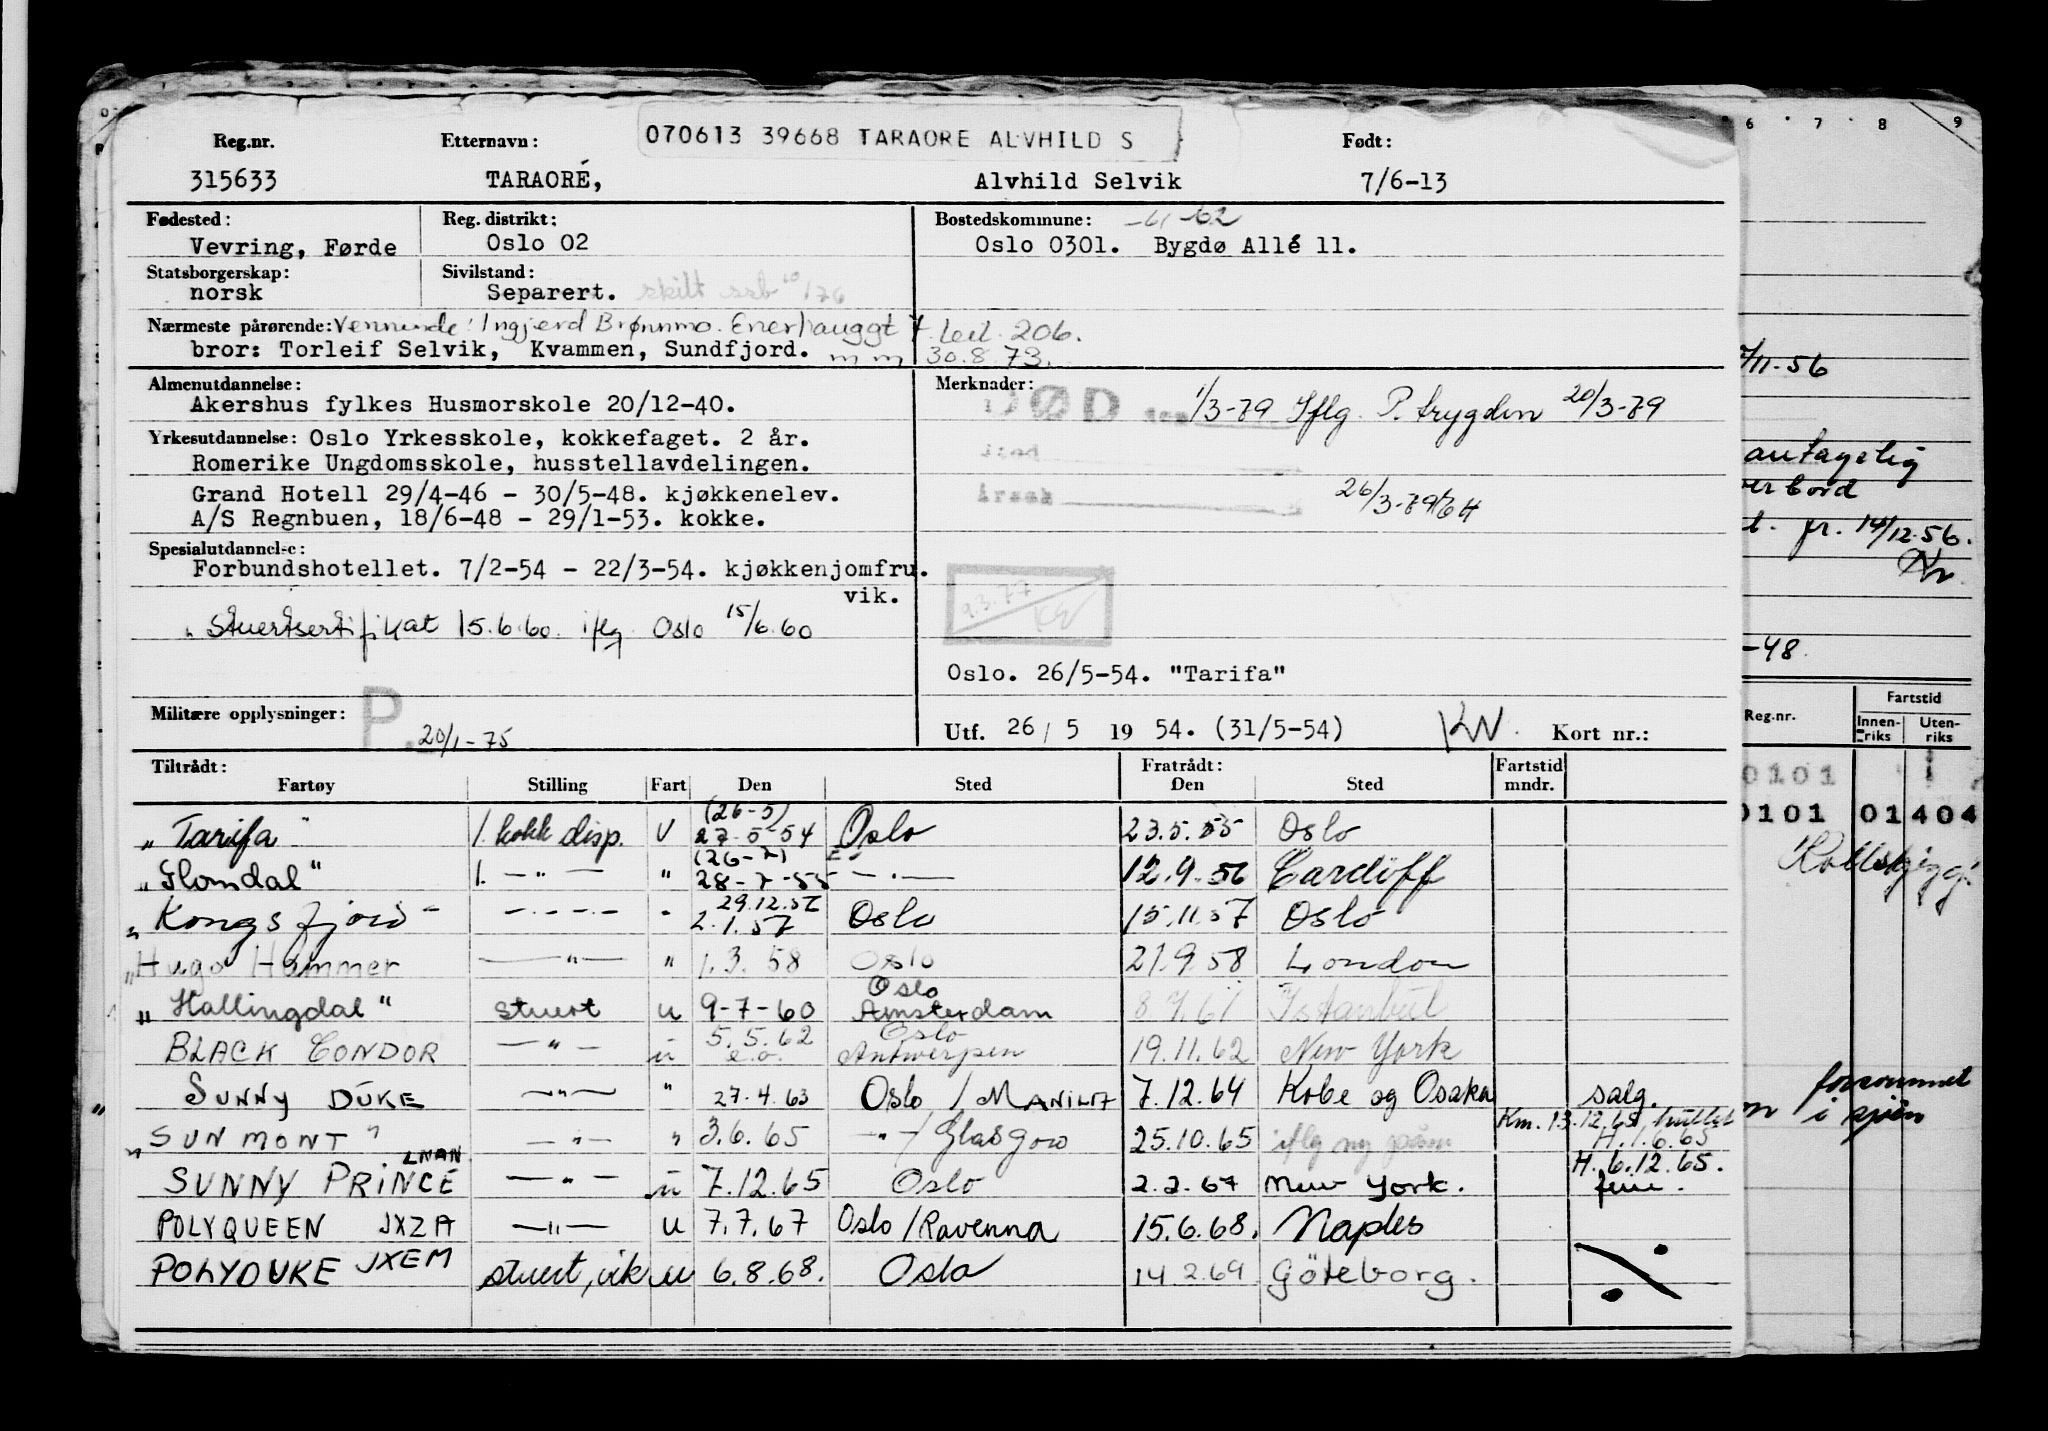 070613 39668 TARAORE ALVHILD S
Reg.nr. Etternavn: Født:
315633 TARAORÉ, Alvhild Selvik 7/6-13
Fødested: Reg. distrikt: Bostedskommune: -61-62
Vevring, Førde Oslo 02 Oslo 0301. Bygdø Allé 11.
Statsborgerskap: Sivilstand:
norsk Separert. skilt ssb
Nærmeste pårørende: Venninde: Ingjerd Brønnmo. Enerhauggt 7 leil. 206.
bror: Torleif Selvik, Kvammen, Sundfjord. 30.8.73.
Almenutdannelse: Merknader:
Akershus fylkes Husmorskole 20/12-40. DØD den 1/3-79 Iflg. P. trygden 20/3-79
Yrkesutdannelse: Oslo Yrkesskole, kokkefaget. 2 år.
Romerike Ungdomsskole, husstellavdelingen. sted
Grand Hotell 29/4-46 - 30/5-48. kjøkkenelev. årsak 26/3-79
A/S Regnbuen, 18/6-48 - 29/1-53. kokke.
Spesialutdannelse:
Forbundshotellet. 7/2-54 - 22/3-54. kjøkkenjomfru.
vik.
9.3.77
Stuertsertifikat 15.6.60. iflg. Oslo 15/6.60
Oslo. 26/5-54. "Tarifa"
Militære opplysninger: P. 20/1-75
Utf. 26/5 1954. (31/5-54) KW. Kort nr.:
Tiltrådt: Fratrådt: Fartstid
Fartøy Stilling Fart Den Sted Den Sted mndr.
(26-5)
"Tarifa" 1. kokk disp. U 27-5-54 Oslo 23.5.55 Oslo
(26-7)
"Flomdal" 1. -"- " 28-7-55 -"- 12.9.56 Cardiff
29.12.56
"Kongsfjord" -"- " 2.1.57 Oslo 15.11.57 Oslo
"Hugo Hammer -"- " 1.3.58 Oslo 21.9.58 London
Oslo
"Hallingdal" stuert u 9-7-60 Amsterdam 8.7.61 Istanbul
5.5.62 Oslo
BLACK CONDOR -"- u e.o. Antwerpen 19.11.62 New York
" SUNNY DUKE -"- " 27.4.63 Oslo / MANILA 7.12.64 Kobe og Osaka salg.
Km. 13.12.65,
"SUNMONT" -"- " 3.6.65 -"- / Glasgow 25.10.65 iflg ny påm H. 1.6.65
LNAN H. 6.12.65.
SUNNY PRINCE -"- u 7.12.65 Oslo 2.2.67 New York. ferie.
POLYQUEEN JXZA -"- u 7.7.67 Oslo / Ravenna 15.6.68. Naples
POLYDUKE JXEM stuert, vik u 6.8.68. Oslo 14.2.69 Göteborg.
6 7 8 9
7/11-56
antagelig
fr. 14/12-56.
-48
Fartstid
Reg.nr. Innen-riks Uten-riks
0101
0101 01 404
forsommet
i sjøen